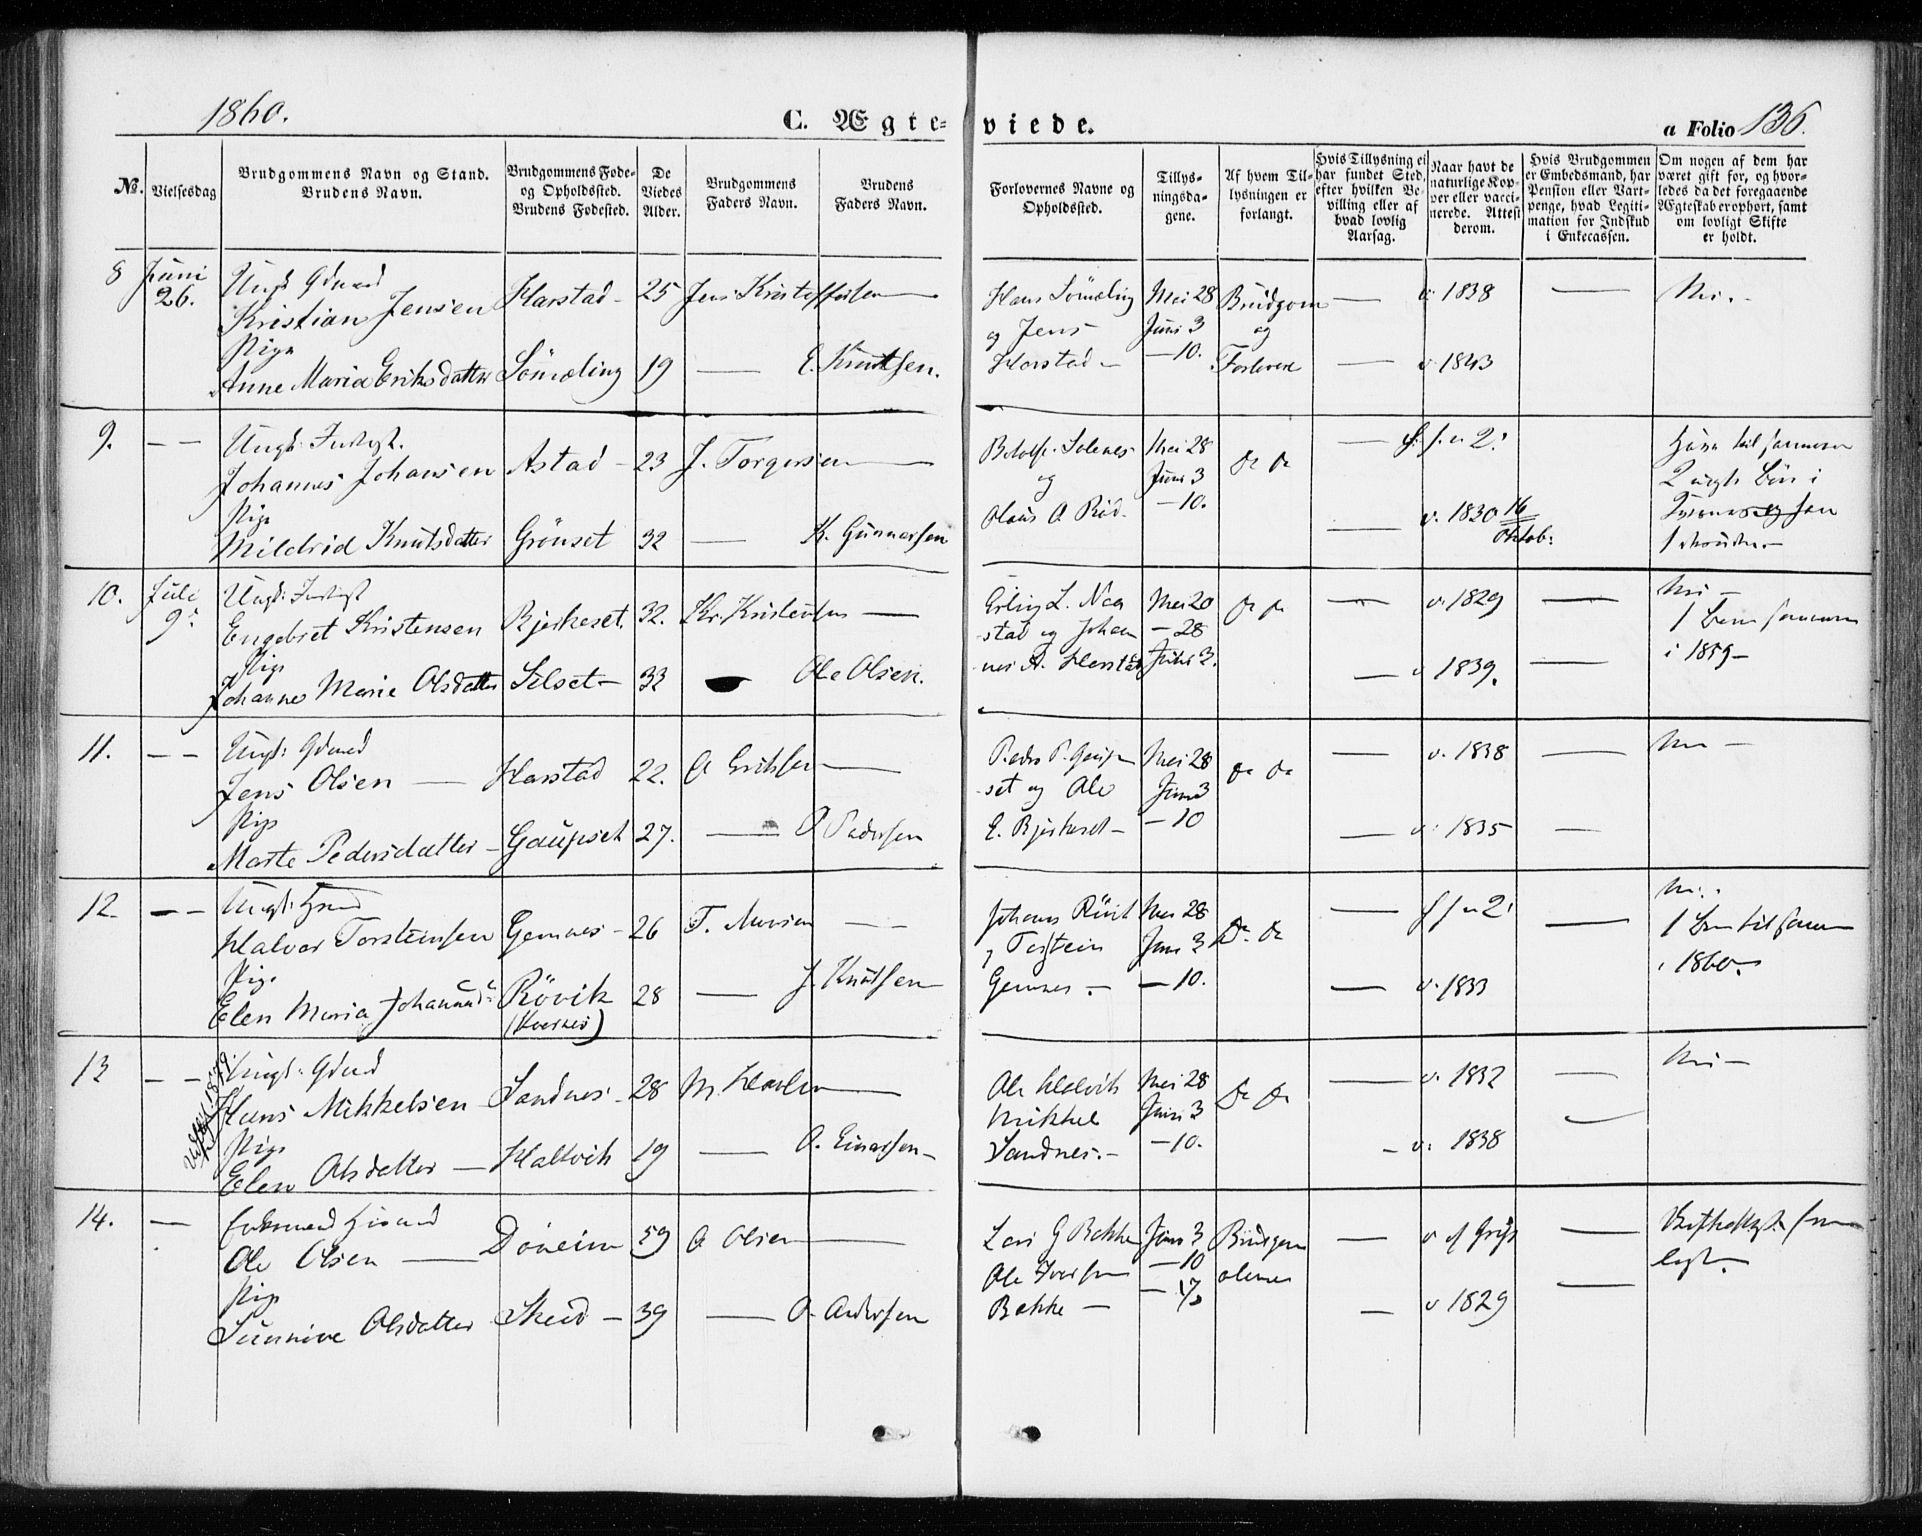 1860.
C. Ægteviede.
a Folio 136.
No.
Vielsesdag
Brudgommens Navn og Stand.
Brudens Navn.
Brudgommens Føde-
og Opholdssted.
Brudens Fødested.
De
Viedes
Alder.
Brudgommens
Faders Navn.
Brudens
Faders Navn.
Forlovernes Navne og
Opholdssted.
Tillys-
ningsda-
gene.
Af hvem Til-
lysningen er
forlangt.
Hvis Tillysning ei
har fundet Sted,
efter hvilken Be-
villing eller af
hvad lovlig
Aarsag.
Naar havt de
naturlige Kop-
per eller vacci-
nerede. Attest
derom.
Hvis Brudgommen
er Embedsmand, har
Pension eller Vart-
penge, hvad Legiti-
mation for Indskud
i Enkecassen.
Om nogen af dem har
været gift før, og hvor-
ledes da det foregaaende
Ægteskab er ophørt, samt
om lovligt Skifte
er holdt.
8 Juni 26.
Ungk. Gdmd
Kristian Jensen Harstad 25 Jens Kristoffersen
Pige
Anne Maria Eriksdatter Sömæling 19 — E. Knutsen.
Hans Sömæling
og Jens
Harstad
Mai 28
Juni 3
— 10.
Brudgom
og
Forlovere
v. 1838
v. 1843
Nei.
9. — —
Ungk.
Johannes Johansen Astad 23 J. Torgersen
Pige
Mildrid Knutsdatter Grönset 32 — K. Gunnersen
Solenes
og
Olaus O.
Mai 28
Juni 3
— 10.
Do Do
v. 1830 16
Oktob:
2
10. Juli 9
Ungk.
Engebret Kristensen Bjerkeset 32. Kr. Kristensen
Pige
Johanne Marie Olsdatter Silset 33 Ole Olsen.
Erling L. Naa
stad og Johan
nes A. Harstad
Mai 20
— 28
Juni 3.
Do Do
v. 1829
v 1839.
Nei —
1 Barn sammen
i 1859 —
11. — —
Ungk. Gdmd
Jens Olsen — Harstad 22. O Eriksen
Pige
Marte Pedersdatter Gaupset 27. — P. Pedersen
Peder P. Gaup
set og Ole
E. Bjerkeset —
Mai 28
Juni 3
— 10
Do Do
v. 1838
v. 1835
Nei —
12. — —
Ungk.
Halvor Torsteinsen Gemnes 26 T.
Pige
Elen Maria Johannesd. Rövik 28 — J. Knutsen
(Kvernes)
Johannes Rövik
og Torstein
Gemnes —
Mai 28
Juni 3
— 10.
Do Do
v. 1833
Nei.
1 Barn tilsammen
i 1860.
13 — —
Ungk. Gdmd
Hans Mikkelsen Sandnes 28 M.
Pige
Elen Olsdatter — Haltvik 19 — O. Einersen
Ole Haltvik
Mikkel
Sandnes.
Mai 28
Juni 3
— 10.
Do Do
v. 1832
v. 1838
Nei —
14. —
Enkemand
Ole Olsen — Döveim 59 O Olsen
Pige
Sunnive Olsdatter Skeid 39 — O. Andersen
Lars G Bakke
Ole Iversen
Bakke —
Juni 3
— 10
— 17
Brudgom
alene
v 1829